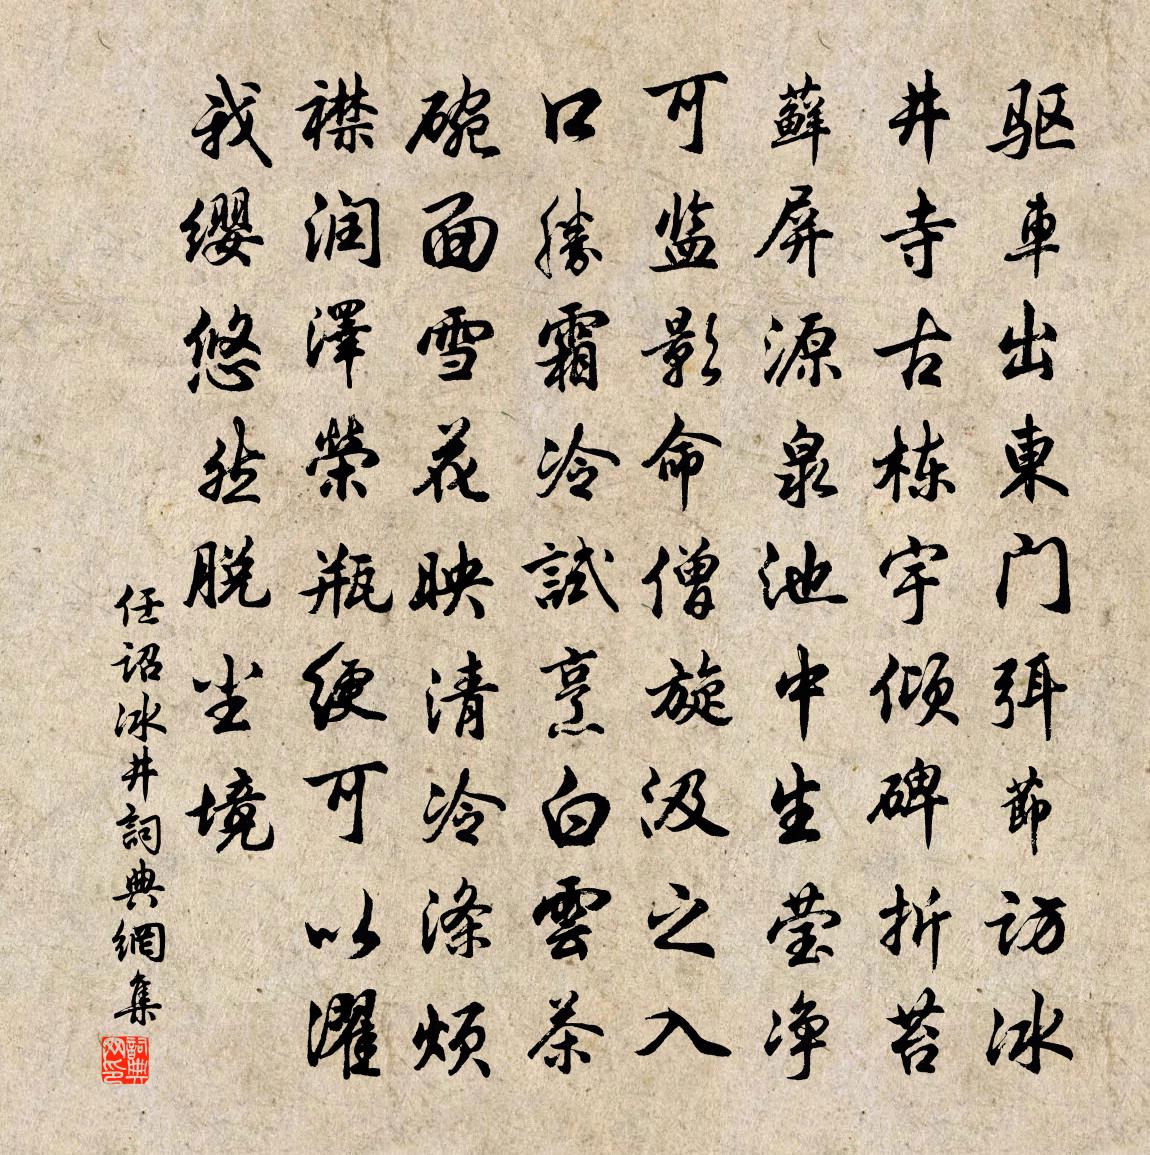 驱車出東门弭節訪冰
井寺古栋宇倾碑折苔
蘚屏源泉池中生莹净
可监影命僧旋汲之入
口勝霜冷試烹白雲茶
碗面雪花映清冷涤烦
襟润澤榮瓶绠可以濯
我缨悠然脱尘境
任诏冰井詞典網集
詞典网印